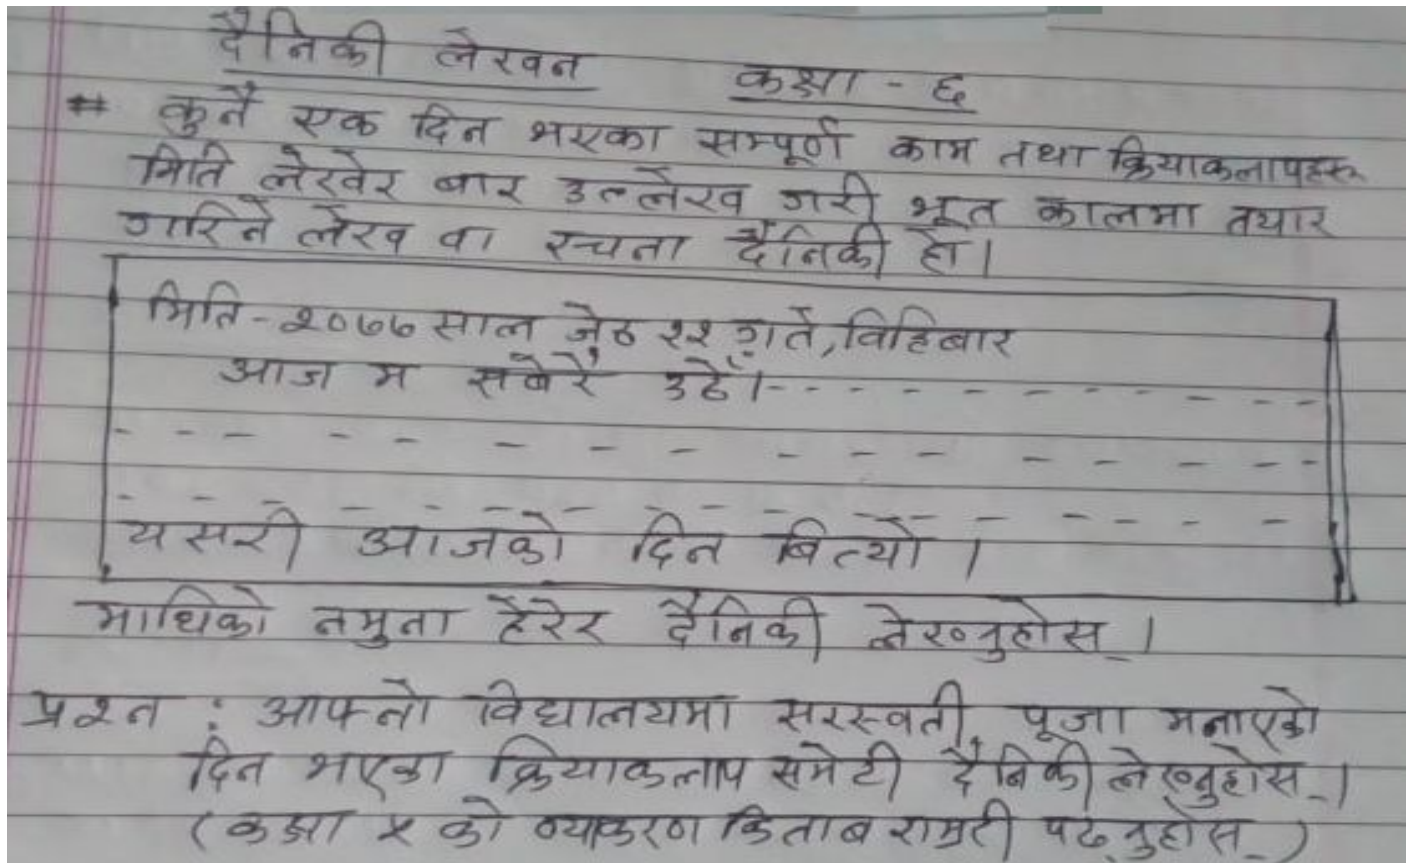 दैनिकी लेखन कक्षा - ६
# कुनै एक दिन भएका सम्पूर्ण काम तथा क्रियाकलापहरू
मिति लेखेर बार उल्लेख गरी भूत कालमा तयार
गरिने लेख वा रचना दैनिकी हो।
मिति - २०७७ साल जेठ २२ गते, विहिबार
आज म सबेरै उठेँ। - - - - - - - - - -
- - - - - - - - - - - - - - -
- - - - - - - - - - - - - - - - - -
यसरी आजको दिन बित्यो ।
माथिको नमुना हेरेर दैनिकी लेख्नुहोस् ।
प्रश्न : आफ्नो विद्यालयमा सरस्वती पूजा मनाएको
दिन भएका क्रियाकलाप समेटी दैनिकी लेख्नुहोस् ।
(कक्षा ५ को व्याकरण किताब राम्ररी पढ्नुहोस् )